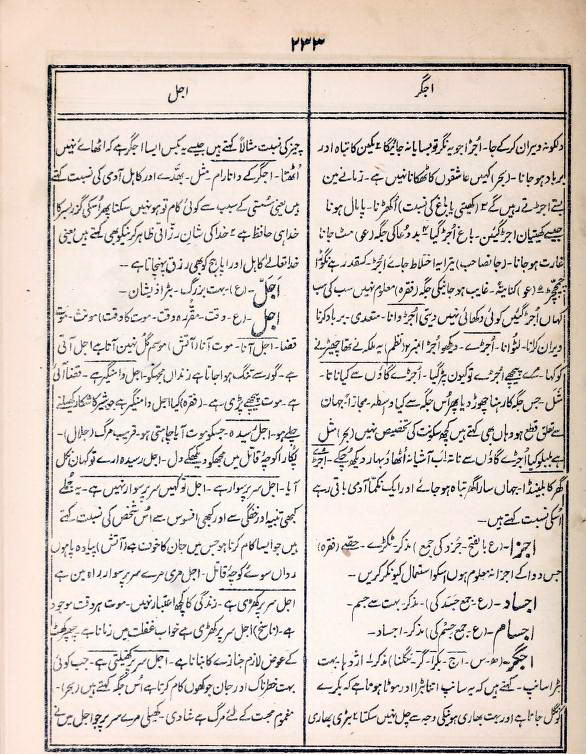 ۲۳۳
اجگر
اجل
دکھو نہ ویران کر کے جا۔ اُجڑا جو یہ نگر تو بسایا نہ جائیگا ۲ مکین کا تباہ اور
برباد ہو جانا۔ (بحر) کہیں عاشقوں کا ٹھکانا نہیں ہے۔ زمانے میں
بستے اجڑتے رہیں گے ۳ (کھیتی یا باغ کی نسبت) اُکھڑنا۔ پامال ہونا
جیسے کھیتیاں اجڑ گئیں۔ باغ اُجڑ گیا ۴ بد دعا کی جگہ (عو) مٹ جانا
غارت ہو جانا۔ (جان صاحب) بترا یہ اختلاط جائے اُجڑ کسقدر ہے نگوڑا
(عو) کنایۃً۔ غایب ہو جانیکی جگہ (فقرہ) معلوم نہیں سب کی سب
کہاں اُجڑ گئیں کوئی دکھائی نہیں دیتی اُجڑوانا۔ متعدی۔ برباد کرنا
ویران کرانا۔ لٹوانا۔ اُجڑے۔ دیکھو اُجڑا نمبر ۲ (نظم)
کو کہا ہے پیچھے اُجڑے تو کیوں پڑ گیا۔ اُجڑے گاؤں سے کیا ناتا۔
مثل۔ جس جگہ کا رہنا چھوڑ دیا پھر اُس جگہ سے کیا واسطہ۔ مجازاً۔ جہان
سے تعلق قطع ہو وہاں بھی کہتے ہیں کچھ سکونت کی تخصیص نہیں (بحر) مثل
ہے بلبلو کیا اُجڑے گاؤں سے ناتہ اب آشیانہ اُٹھا دو بہار دیکھ چکے۔ اُجڑے
گھر کا بلینڈا۔ جہاں سارا گھر تباہ ہو جائے اور ایک نکما آدمی باقی رہے
اُسکی نسبت کہتے ہیں۔
اجزا۔ (ع بالفتح۔ جزو کی جمع) مذکر۔ ٹکڑے۔ حصے (فقرہ)
جس دوا کے اجزا نہ معلوم ہوں اُسکو استعمال کیونکر کریں۔
اجساد۔ (ع۔ جمع جسد کی) مذکر۔ بہت سے جسم۔
اجسام۔ (ع۔ جمع جسم کی) مذکر۔ اجساد۔
اجگر۔ (ھ۔ س۔ اج۔ بکرا۔ گر۔ نگلنا) مذکر ۱۔ اژدہا بہت
بڑا سانپ۔ کہتے ہیں کہ یہ سانپ اتنا بڑا اور موٹا ہوتا ہے کہ بکرے
کو نگل جاتا ہے اور بہت بھاری ہونیکی وجہ سے چل نہیں سکتا ۲ بڑی بھاری
چیز کی نسبت مثالاً کہتے ہیں جیسے یہ بکس ایسا اجگر ہے کہ اٹھائے نہیں
اُٹھتا۔ اجگر کے داتا رام۔ مثل۔ بھدّے اور کاہل آدمی کی نسبت کہتے
ہیں یعنی سُستی کے سبب سے کوئی کام تو ہو نہیں سکتا پھر اُسکی گزر کیسا
خدا ہی حافظ ہے ۲ خدا کی شانِ رزّاقی ظاہر کرنیکو بھی کہتے ہیں یعنی
خدا تعالےٰ کاہل اور اپاہج کو بھی رزق پہنچاتا ہے۔
اَجَلّ۔ (ع)۔ بہت بزرگ۔ بڑا ذیشان۔
اجل۔ (ع۔ وقت۔ مقررہ وقت۔ موت کا وقت) مونث۔ موت
قضا۔ اجل آنا۔ موت آنا (آتش) موسم گل نہیں آتا ہے اجل آتی
ہے۔ گور سے تنگ ہوا جاتا ہے زنداں مجھکو۔ اجل دامنگیر ہے۔ قضا آئی
ہے۔ موت پیچھے پڑی ہے۔ (فقرہ) کیا اجل دامنگیر ہے جو شیر کا شکار کھیلنے
چلے ہو۔ اجل رسیدہ۔ جسکو موت آیا چاہتی ہو۔ قریب مرگ (جلال)۔
پکارا کوچۂ قاتل میں مجھکو دیکھکے دل۔ اجل رسیدہ ارے تو کہاں نکل
آیا۔ اجل سر پر سوار ہے۔ اجل تو کہیں سر پر سوار نہیں ہے۔ یہ جملے
کبھی تنبیہ اور خفگی سے اور کبھی افسوس سے اُس شخص کی نسبت کہتے
ہیں جو ایسا کام کرتا ہو جس میں جان کا خوف ہے (آتش) پیادہ پا ہوں
رواں سوئے کوچۂ قاتل۔ اجل مری مرے سر پر سوار راہ میں ہے
اجل سر پر کھڑی ہے۔ زندگی کا کچھ اعتبار نہیں۔ موت ہر وقت موجود
ہے۔ (ناسخ) اجل سر پر کھڑی ہے خواب غفلت میں زمانا ہے۔ چھپر کھٹ
کے عوض لازم جنازے کا بنانا ہے۔ اجل سر پر کھیلتی ہے۔ جب کوئی
بہت خطرناک اور جان جوکھوں کام کرتا ہے اُس جگہ کہتے ہیں (بحر)۔
مغموم محبت کے لئے مرگ ہے شادی۔ کھیلی مرے سر پر جو اجل میں نے